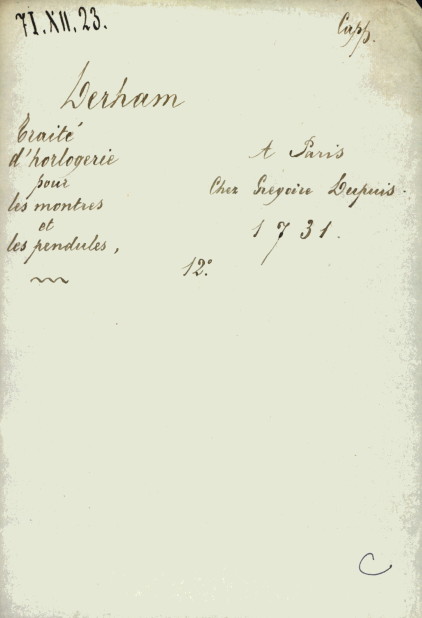 71.XII.23.
Capp.
Derham
Traité
d'horlogerie
pour
les montres
et
les pendules,
A Paris
Chez Gregoire Dupuis.
1731.
12°
C